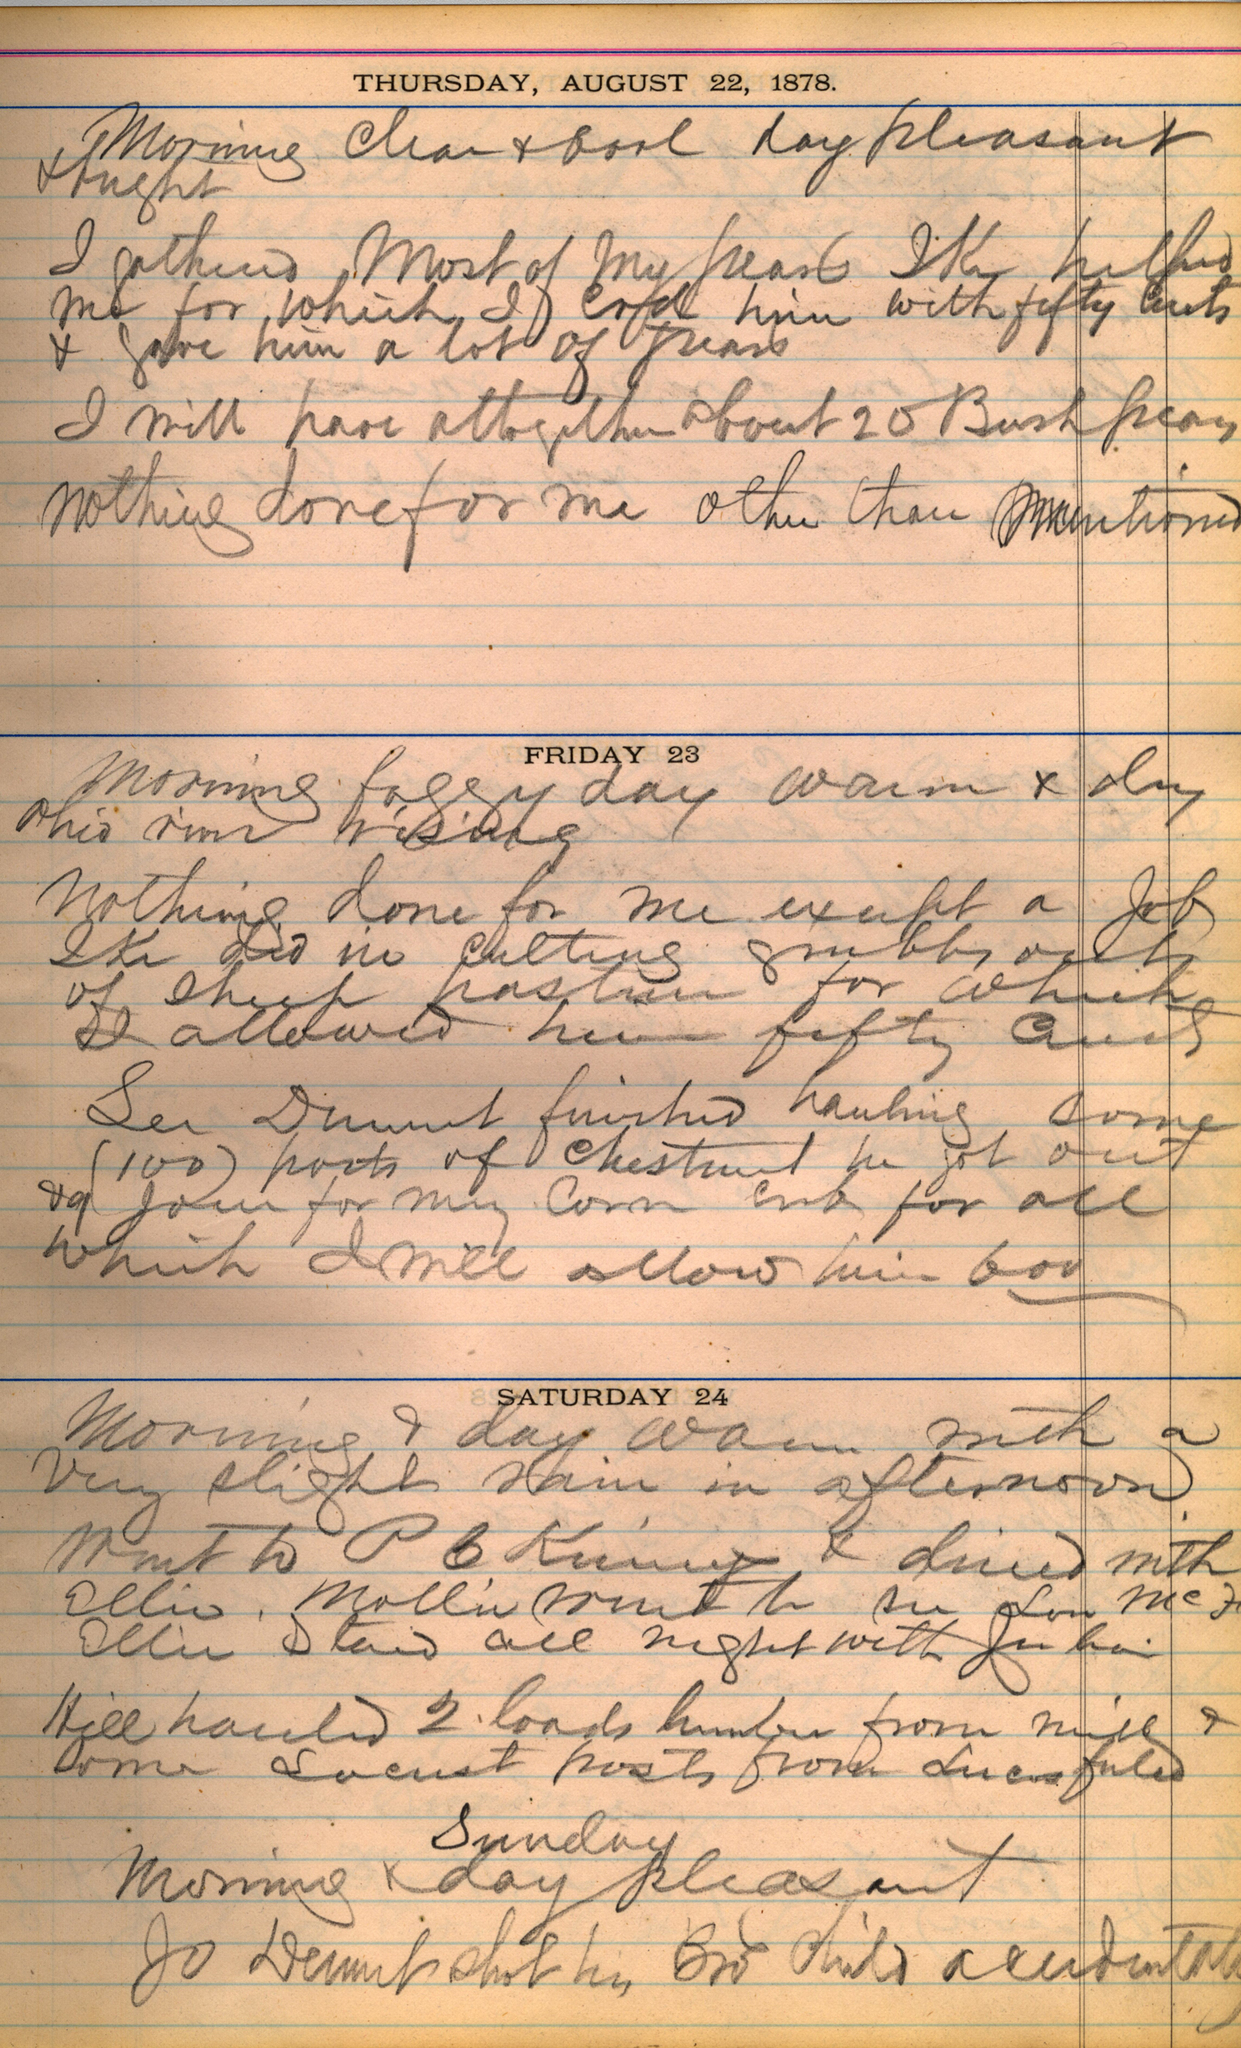 THURSDAY, AUGUST 22, 1878.
Morning Clear & Cool day pleasant
& bright
I gathered Most of My pears Ike helped
me for which I him with fifty Cents
& gave him a lot of pears
I will have altogether about 20 Bush pears
Nothing done for me other than Mentioned
FRIDAY 23
Morning foggy day warm & dry
Ohio river rising
Nothing done for me except a Job
Ike did in Cutting grubbs out
of Sheep pasture for which
I allowed him fifty Cents
Lee Demut finished hauling some
(100) posts of Chestnut he got out
for my Corn Crib for all
which I will allow him 600
SATURDAY 24
Morning & day warm with a
Very slight rain in afternoon
Went to P C Kinney & dined with
Ellie. Mollie went to see Lou Mc
Ellie Staid all night with Julia
Hill hauled 2 loads lumber from mill &
some Locust posts from Lucas field
Sunday
Morning & day pleasant
Jo Demut shot his Bro Child accidentaly